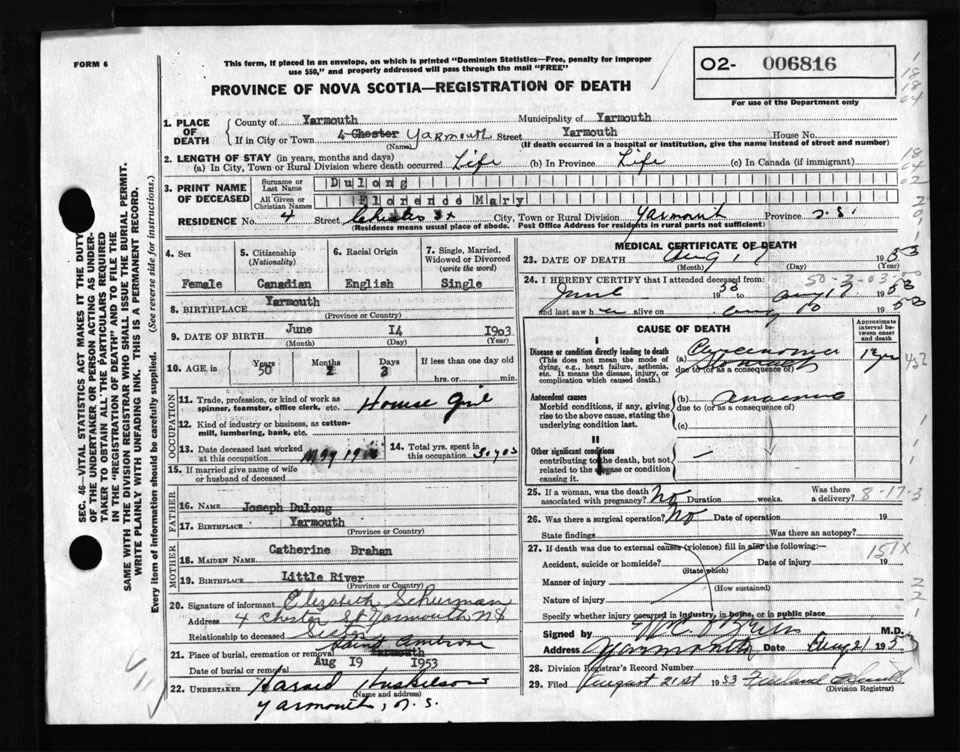 FORM 6
This form, if placed in an envelope, on which is printed "Dominion Statistics—Free, penalty for improper
use $50," and properly addressed will pass through the mail "FREE"
O2- 006816
For use of the Department only
PROVINCE OF NOVA SCOTIA—REGISTRATION OF DEATH
1. PLACE OF DEATH
County of Yarmouth Municipality of Yarmouth
If in City or Town 4 Chester Yarmouth Street Yarmouth House No.
(Name) (If death occurred in a hospital or institution, give the name instead of street and number)
2. LENGTH OF STAY (in years, months and days)
(a) In City, Town or Rural Division where death occurred Life (b) In Province Life (c) In Canada (if immigrant)
3. PRINT NAME OF DECEASED
Surname or Last Name Dulong
All Given or Christian Names Florence Mary
RESIDENCE No. 4 Street City, Town or Rural Division Yarmouth Province N.S.
(Residence means usual place of abode. Post Office Address for residents in rural parts not sufficient)
4. Sex Female
5. Citizenship (Nationality) Canadian
6. Racial Origin English
7. Single, Married, Widowed or Divorced (write the word) Single
8. BIRTHPLACE Yarmouth
(Province or Country)
9. DATE OF BIRTH June 14 1903
(Month) (Day) (Year)
10. AGE in Years 50 Months 2 Days 3 If less than one day old hrs. or min.
OCCUPATION
11. Trade, profession, or kind of work as spinner, teamster, office clerk, etc. House Girl
12. Kind of industry or business, as cotton-mill, lumbering, bank, etc.
13. Date deceased last worked at this occupation May 19
14. Total yrs. spent in this occupation 30 yrs
15. If married give name of wife or husband of deceased
FATHER
16. NAME Joseph Dulong
17. BIRTHPLACE Yarmouth
(Province or Country)
MOTHER
18. MAIDEN NAME Catherine Brahan
19. BIRTHPLACE Little River
(Province or Country)
20. Signature of informant Elizabeth Schurman
Address 4 Chester St Yarmouth NS
Relationship to deceased Sister
21. Place of burial, cremation or removal Saint Ambrose Yarmouth
Date of burial or removal Aug 19 1953
22. UNDERTAKER Huskilson
(Name and address)
Yarmouth, N.S.
MEDICAL CERTIFICATE OF DEATH
23. DATE OF DEATH Aug 17 1953
(Month) (Day) (Year)
24. I HEREBY CERTIFY that I attended deceased from:
June 1950 to Aug 17 1953
and last saw her alive on Aug 1953
CAUSE OF DEATH
Approximate interval between onset and death
I
Disease or condition directly leading to death (a) Carcinoma
(This does not mean the mode of dying, e.g., heart failure, asthenia, etc. It means the disease, injury, or complication which caused death.)
due to (or as a consequence of)
Antecedent causes (b)
Morbid conditions, if any, giving rise to the above cause, stating the underlying condition last.
due to (or as a consequence of)
(c)
II
Other significant conditions contributing to the death, but not related to the disease or condition causing it. —
25. If a woman, was the death associated with pregnancy? No Duration weeks. Was there a delivery?
8-17-3
26. Was there a surgical operation? No Date of operation 19
State findings Was there an autopsy?
27. If death was due to external causes (violence) fill in also the following:—
151X
Accident, suicide or homicide? Date of injury 19
(State which)
Manner of injury
(How sustained)
Nature of injury
Specify whether injury occurred in industry, in home, or in public place
Signed by M.D.
Address Yarmouth Date Aug 21 1953
28. Division Registrar's Record Number
29. Filed August 21st 1953
(Division Registrar)
SEC. 46—VITAL STATISTICS ACT MAKES IT THE DUTY
OF THE UNDERTAKER OR PERSON ACTING AS UNDER-
TAKER TO OBTAIN ALL THE PARTICULARS REQUIRED
IN THE "REGISTRATION OF DEATH" AND TO FILE THE
SAME WITH THE DIVISION REGISTRAR WHO SHALL ISSUE THE BURIAL PERMIT.
WRITE PLAINLY WITH UNFADING INK. THIS IS A PERMANENT RECORD.
Every item of information should be carefully supplied. (See reverse side for instructions.)